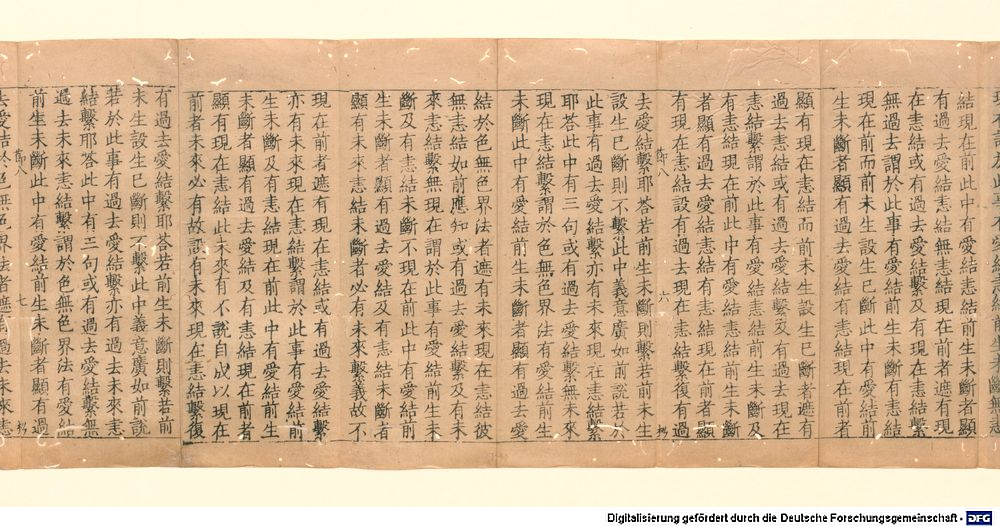 結現在前此中有愛結前生未斷者顯
有過去愛結恚結無現在前者遮有現
在恚結若於此事有愛結繫及有恚結
無過去謂於此事有愛結前生未斷有恚結
現在前而前未生設生已斷此中有愛結前
生未斷者顯有過去愛結有恚結現在前者
顯有現在恚結而前未生設生已斷者遮有
過去恚結或有過去愛結繫及有過去現在
恚結繫謂於此事有愛結恚結前生未斷及
有恚結現在前此中有愛結恚結前生未斷
者顯有過去愛結恚結有恚結現在前者顯
有現在恚結設有過去現在恚結繫復有過
節八 六
去愛結繫耶答若前生未斷則繫若前未生
設生已斷則不繫此中義意廣如前說若於
此事有過去愛結繫亦有未來現在恚結繫
耶答此中有三句或有過去愛結繫無未來
現在恚結繫謂於色無色界法有愛結前生
未斷此中有愛結前生未斷者顯有過去愛
結於色無色界法者遮有未來現在恚結彼
無恚結如前應知或有過去愛結繫及有未
來恚結繫無現在謂於此事有愛結前生未
斷及有恚結未斷不現在前此中有愛結前
生未斷者顯有過去愛結及有恚結未斷者
顯有未來恚結未斷者必有未來繫義故不
現在前者遮有現在恚結或有過去愛結繫
亦有未來現在恚結繫謂於此事有愛結前
生未斷及有恚結現在前此中有愛結前生
未斷者顯有過去愛結及有恚結現在前者
顯有現在恚結此未來有不說自成以現在
前者未來必有故設有未來現在恚結繫復
有過去愛結繫耶答若前生未斷則繫若前
未生設生已斷則不繫此中義意廣如前說
若於此事有過去愛結繫亦有過去未來恚
結繫耶答此中有三句或有過去愛結繫無
過去未來恚結繫謂於色無色界法有愛結
前生未斷此中有愛結前生未斷者顯有過
節八 七
去愛結於色無色界法者遮有過去未來恚
Digitalisierung gefördert durch die Deutsche Forschungsgemeinschaft - DFG